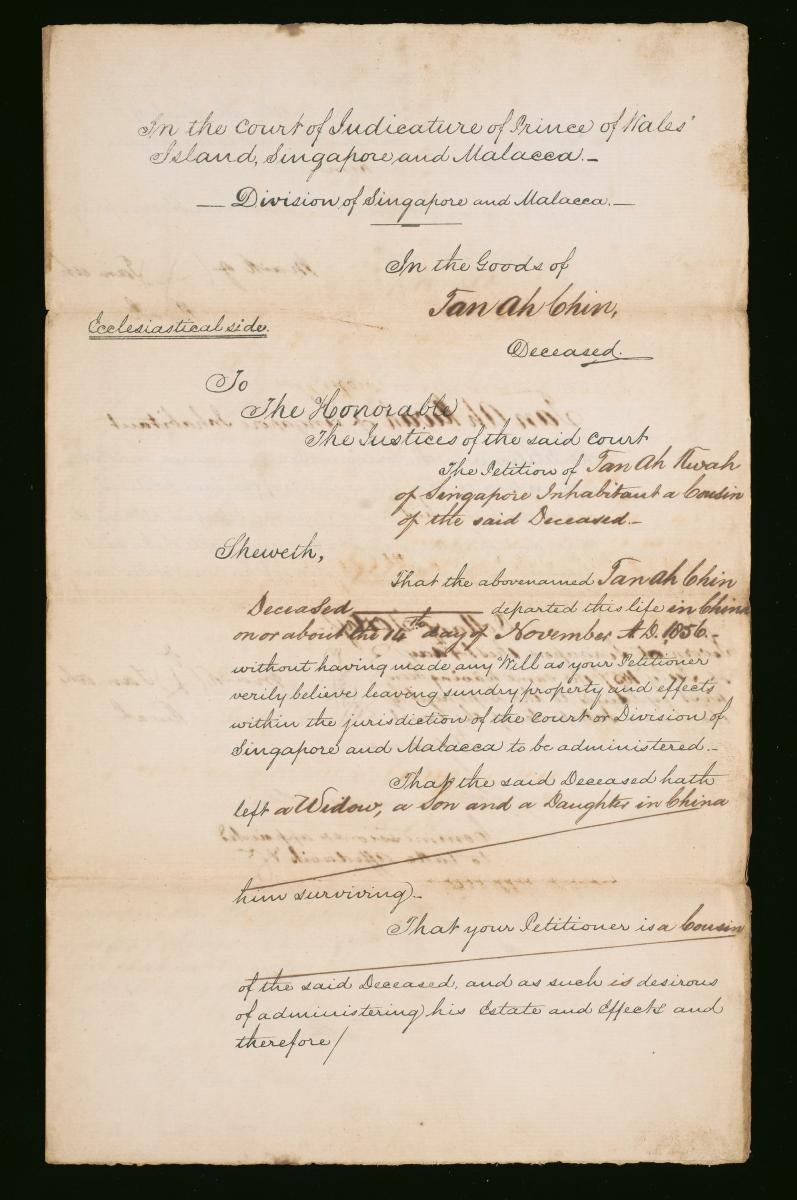 In the Court of Judicature of Prince of Wales'
Island, Singapore and Malacca.—
— Division of Singapore and Malacca.—
In the Goods of
Tan Ah Chin,
Ecclesiastical side.
Deceased.
To
The Honorable
The Justices of the said Court
The Petition of Tan Ah Kwah
of Singapore Inhabitant a Cousin
of the said Deceased.—
Sheweth,
That the abovenamed Tan Ah Chin
Deceased departed this life in China
on or about the 14th day of November A.D. 1856.—
without having made any Will as your Petitioner
verily believe leaving sundry property and effects
within the jurisdiction of the Court or Division of
Singapore and Malacca to be administered.—
That the said Deceased hath
left a Widow, a Son and a Daughter in China
him surviving.—
That your Petitioner is a Cousin
of the said Deceased, and as such is desirous
of administering his Estate and Effects and
therefore/